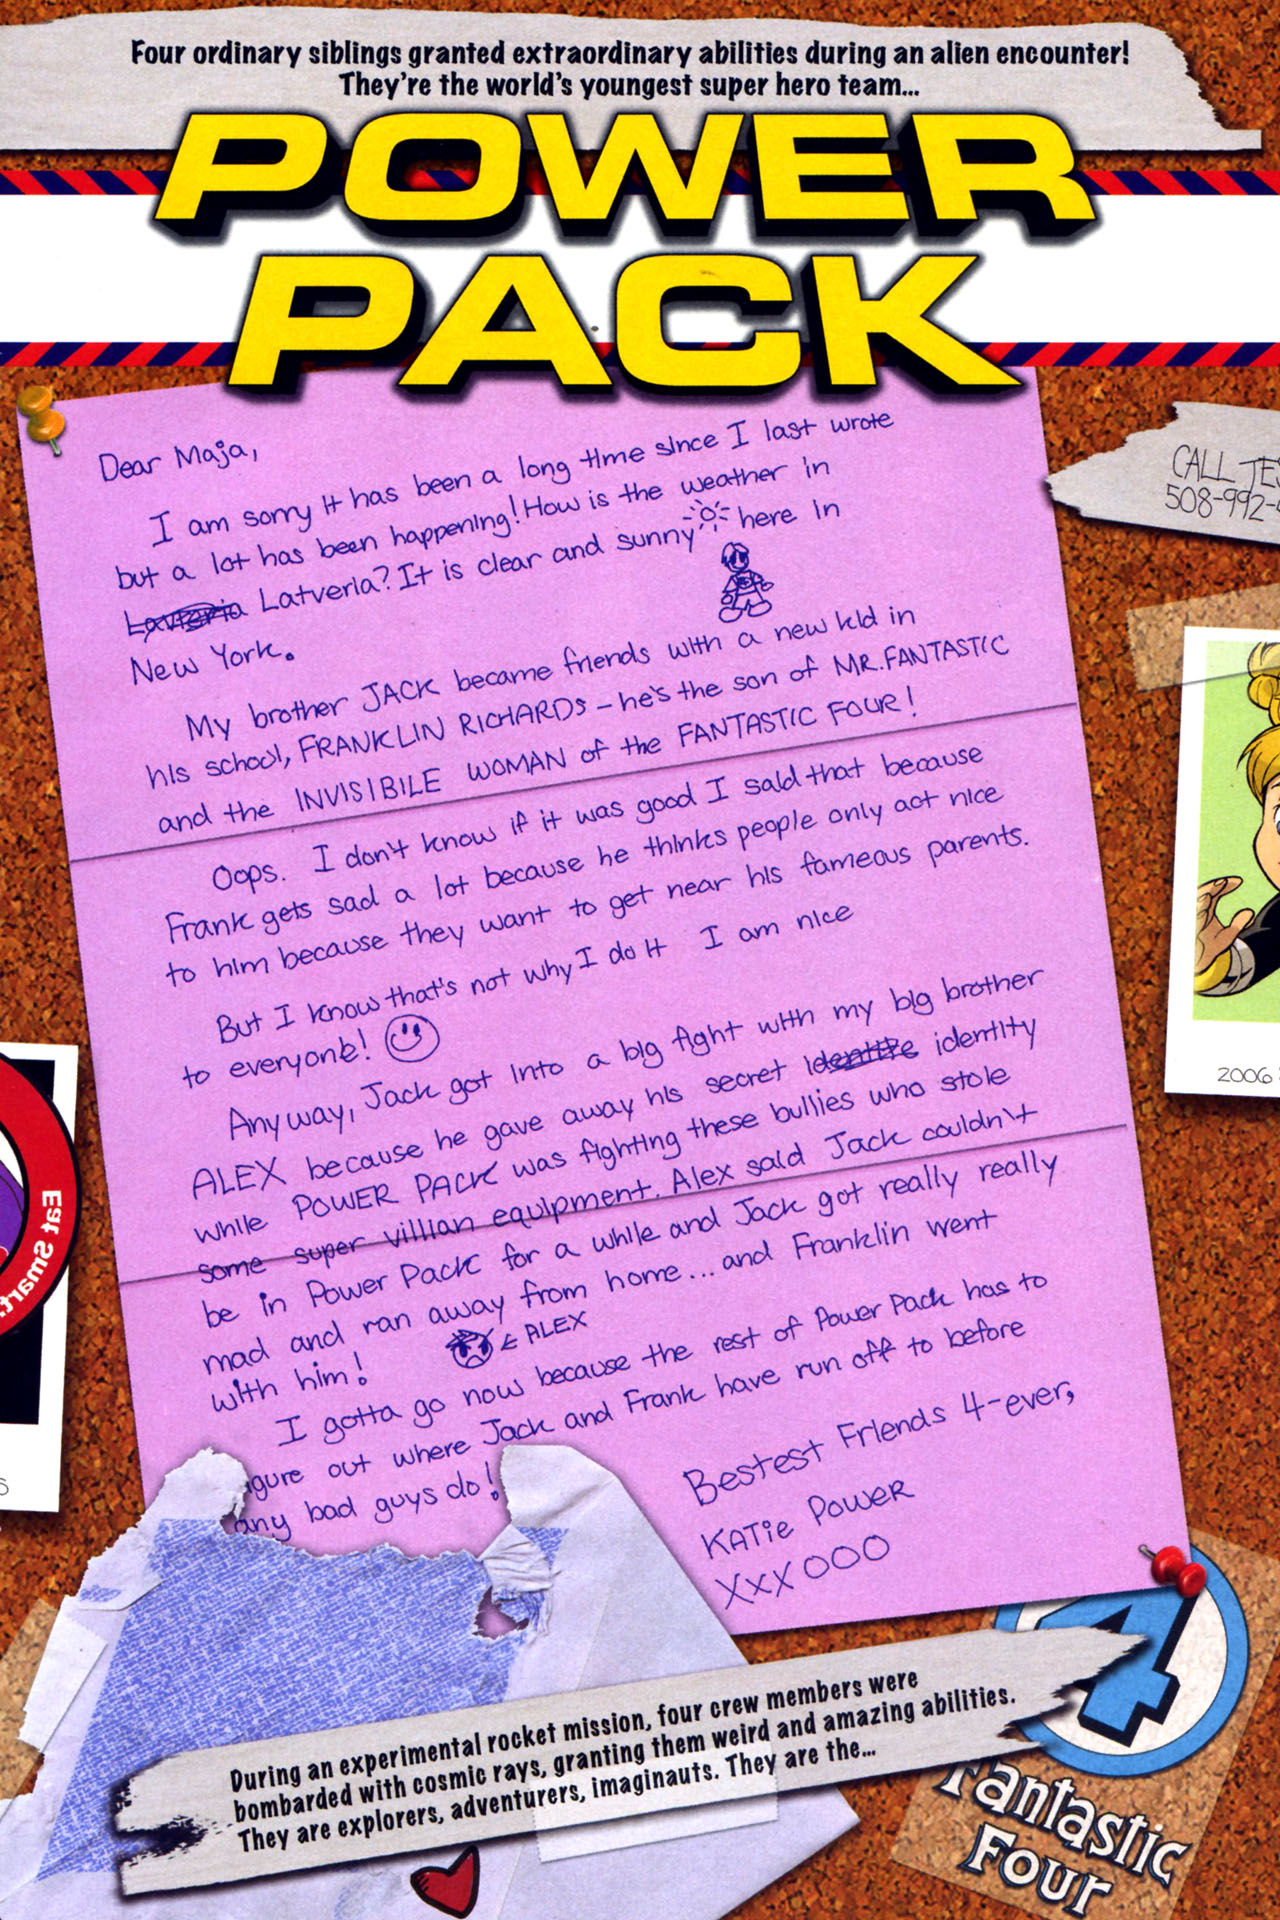 Four ordinary siblings granted extraordinary abilities during an alien encounter!
They're the world's youngest super hero team...
POWER
PACK
Dear Maja,
I am sorry it has been a long time since I last wrote
but a lot has been happening! How is the weather in
Laviteria Latveria? It is clear and sunny here in
New York.
My brother JACK became friends with a new kid in
his school, FRANKLIN RICHARDS – he's the son of MR. FANTASTIC
and the INVISIBILE WOMAN of the FANTASTIC FOUR!
Oops. I don't know if it was good I said that because
Frank gets sad a lot because he thinks people only act nice
to him because they want to get near his fameous parents.
But I know that's not why I do it I am nice
to everyone!
Anyway, Jack got into a big fight with my big brother
ALEX because he gave away his secret identitie identity
while POWER PACK was fighting these bullies who stole
some super villian equipment. Alex said Jack couldn't
be in Power Pack for a while and Jack got really really
mad and ran away from home... and Franklin went
with him!
ALEX
I gotta go now because the rest of Power Pack has to
igure out where Jack and Frank have run off to before
any bad guys do!
Bestest Friends 4-ever,
KATie POWER
XXXOOO
CALL TES
508-992-
2006
Eat Smart.
S
4
Fantastic
Four
During an experimental rocket mission, four crew members were
bombarded with cosmic rays, granting them weird and amazing abilities.
They are explorers, adventurers, imaginauts. They are the...